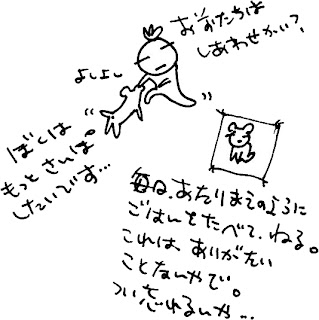 おめたちは
しあわせかい?
よしよし
ぼくは
もっとさんぽ
したいです…
毎日、あたりまえのように
ごはんをたべて、ねる。
これは、ありがたい
ことなんやで。
つい忘れるんや…